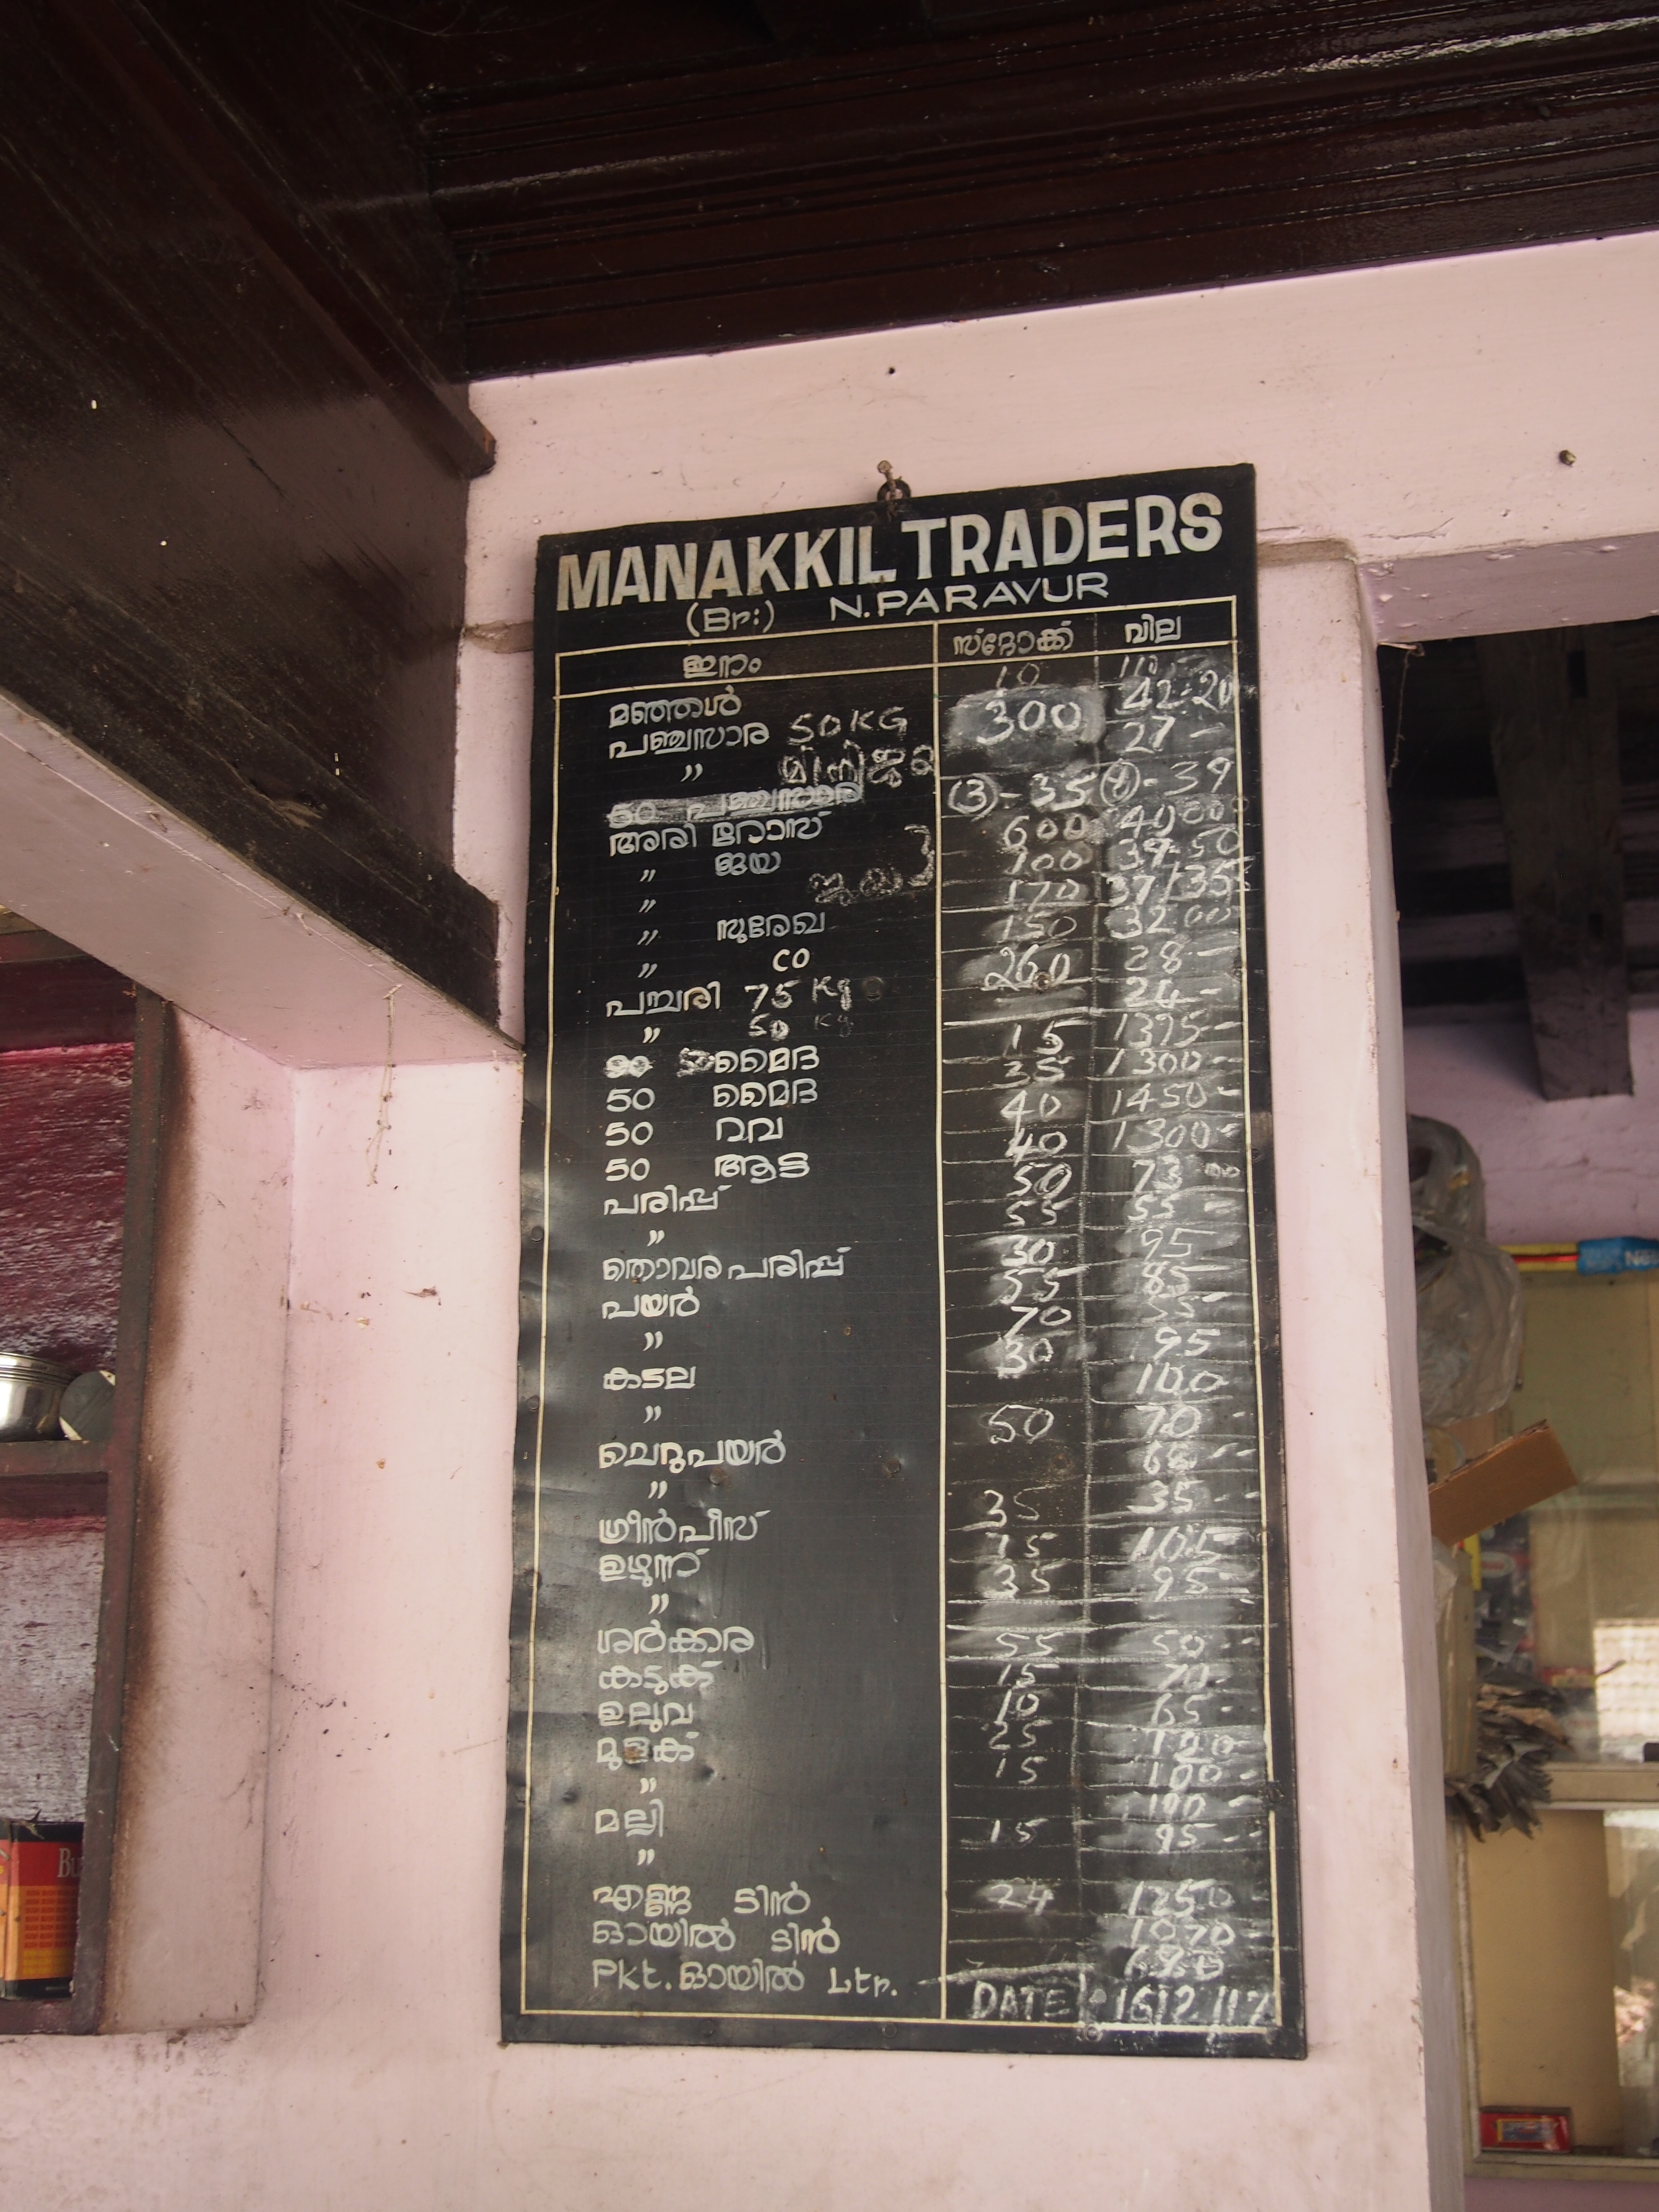 MANAKKIL TRADERS
(Br:) N.PARAVUR
ഇനം സ്റ്റോക്ക് വില
മഞ്ഞൾ 10
പഞ്ചസാര 50KG 300 42-20
" 27 -
50 പഞ്ചസാര (3)-35 (4)-39
അരി റോസ് 600 40 00
" ജയ 100 39-50
" ജയ 3 170 37/35
" സുരേഖ 150 32 00
" co 260 28 -
പച്ചരി 75 Kg 24 -
" 50 Kg 15 1375 -
മൈദ 35 1300 -
50 മൈദ 40 1450 -
50 റവ 40 1300 -
50 ആട്ട 50 73
പരിപ്പ് 55 55 -
" 30 95
തൊവര പരിപ്പ് 55 85 -
പയർ 70 55 -
" 30 95
കടല 100
" 50 70 -
ചെറുപയർ 68 -
" 35 35 -
ഗ്രീൻപീസ് 15 105
ഉഴുന്ന് 35 95 -
"
ശർക്കര 55 50 -
കടുക് 15 70 -
ഉലുവ 10 65 -
മുളക് 25
" 15 100 -
മല്ലി
" 15 95 -
എണ്ണ ടിൻ 24 1250
ഓയിൽ ടിൻ 1070 -
Pkt. ഓയിൽ Ltr.
DATE 16 12 17